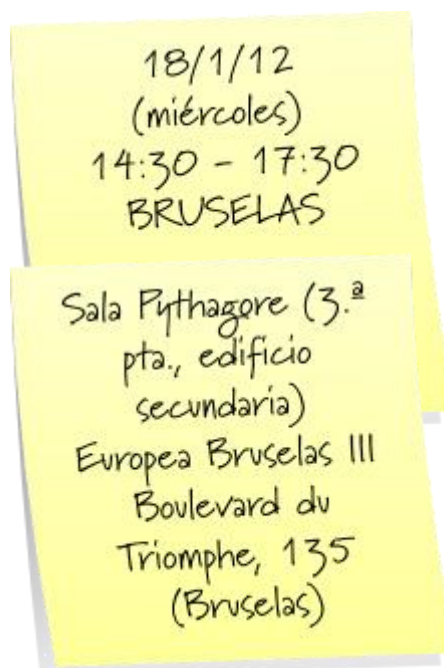 18/1/12
(miércoles)
14:30 - 17:30
BRUSELAS
Sala Pythagore (3.ª
pta., edificio
secundaria)
Europea Bruselas III
Boulevard du
Triomphe, 135
(Bruselas)